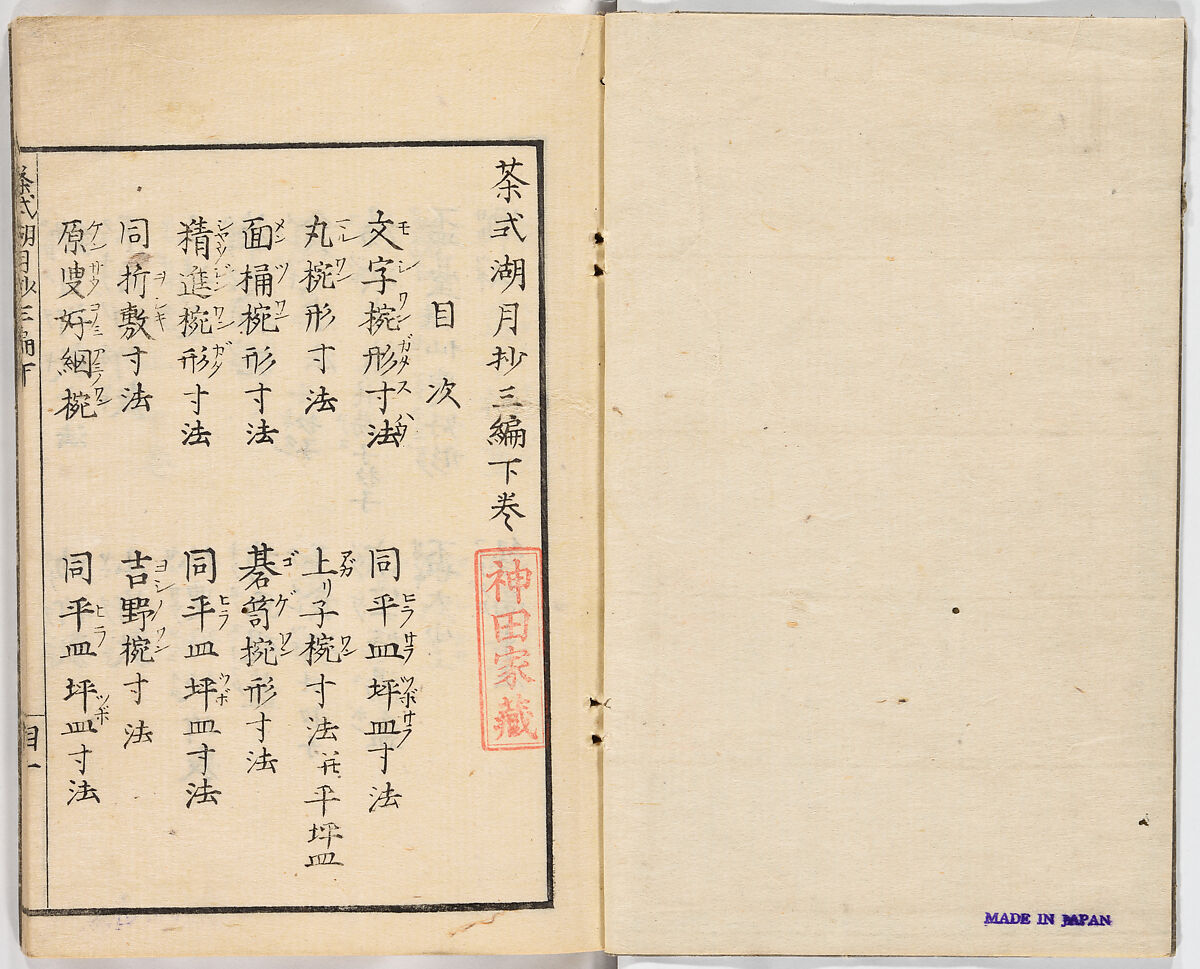 茶式湖月抄三編下巻
神田家藏
目次
文字椀形寸法
同平皿坪皿寸法
丸椀形寸法
上リ子椀寸法并平坪皿
面桶椀形寸法
碁笥椀形寸法
精進椀形寸法
同平皿坪皿寸法
同折敷寸法
吉野椀寸法
原叟好網椀
同平皿坪皿寸法
茶式湖月抄三編下
目一
MADE IN JAPAN